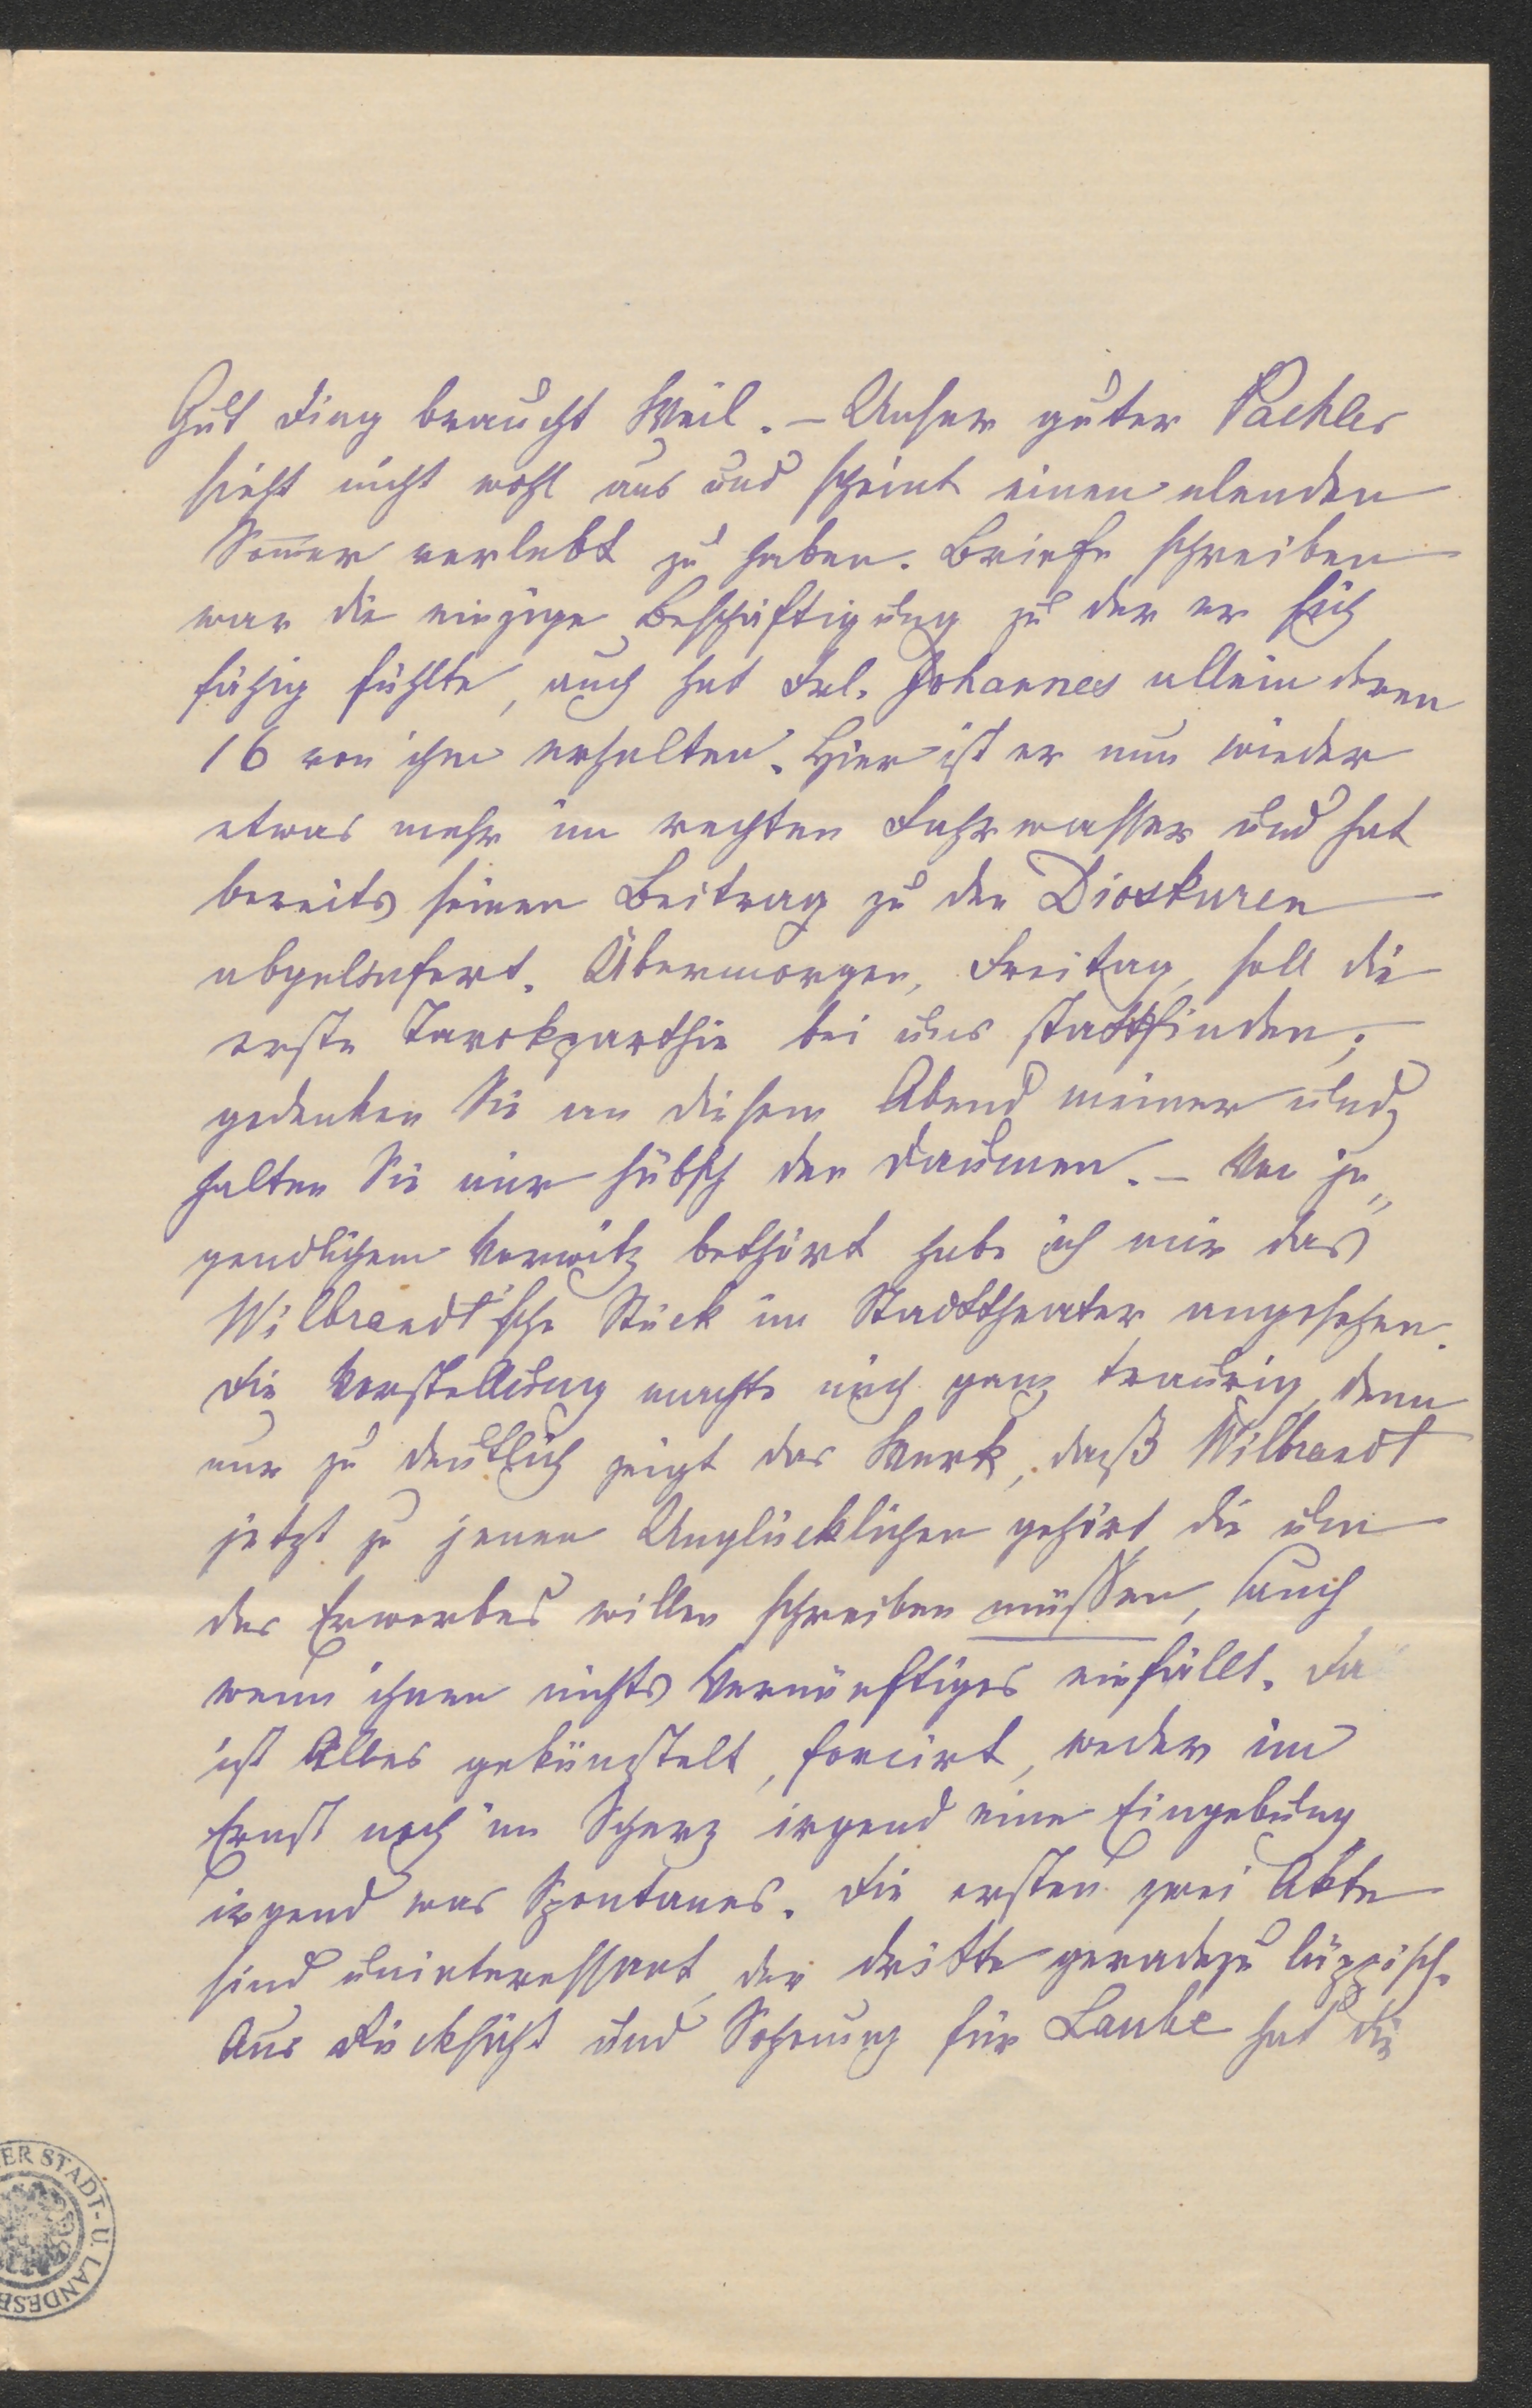 Gut Ding braucht Weil. – Unser guter Pachler
sieht nicht wohl aus und scheint einen elenden
Som̄er verlebt zu haben. Briefe schreiben
war die einzige Beschäftigung zu der er sich
fähig fühlte, auch hat Frl. Johannes allein deren
16 von ihm erhalten. Hier ist er nun wieder
etwas mehr im rechten Fahrwasser und hat
bereits seinen Beitrag zu den Dioskuren
abgeliefert. Übermorgen, Freitag, soll die
erste Tarokparthie bei uns stattfinden;
gedenken Sie an diesem Abend meiner und
halten Sie mir hübsch den Daumen. – Von ju„
gendlichem Vorwitz bethört habe ich mir das
Wilbrandt'sche Stück im Stadttheater angesehen.
Die Vorstellung machte mich ganz traurig, denn
nur zu deutlich zeigt das Werk, daß Wilbrandt
jetzt zu jenen Unglücklichen gehört die um
des Erwerbes willen schreiben müssen, auch
wenn ihnen nichts Vernünftiges einfällt. Da
ist Alles gekünstelt, forcirt, weder im
Ernst noch im Scherz irgend eine Eingebung
irgend was Spontanes. Die ersten zwei Akte
sind uninteressant, der dritte geradezu läppisch.
Aus Rücksicht und Schonung für Laube hat die
ER STADT- U. LANDESB